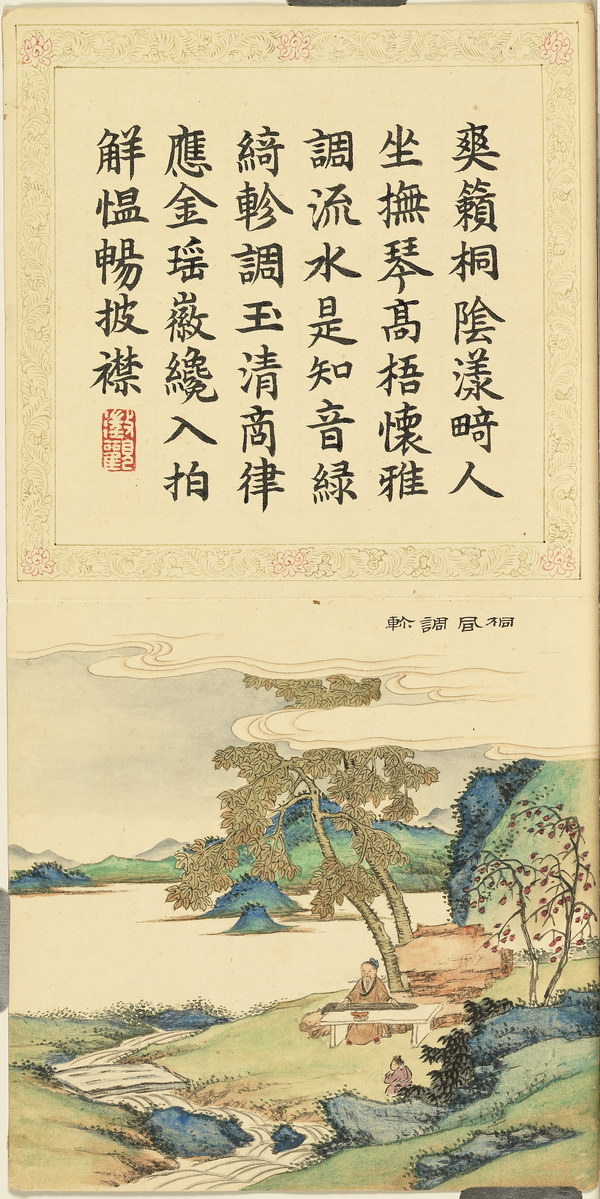 爽籟桐陰漾畸人
坐撫琴髙梧懷雅
調流水是知音緑
綺軫調玉清商律
應金瑶徽纔入拍
觧愠暢披襟
桐凮調軫